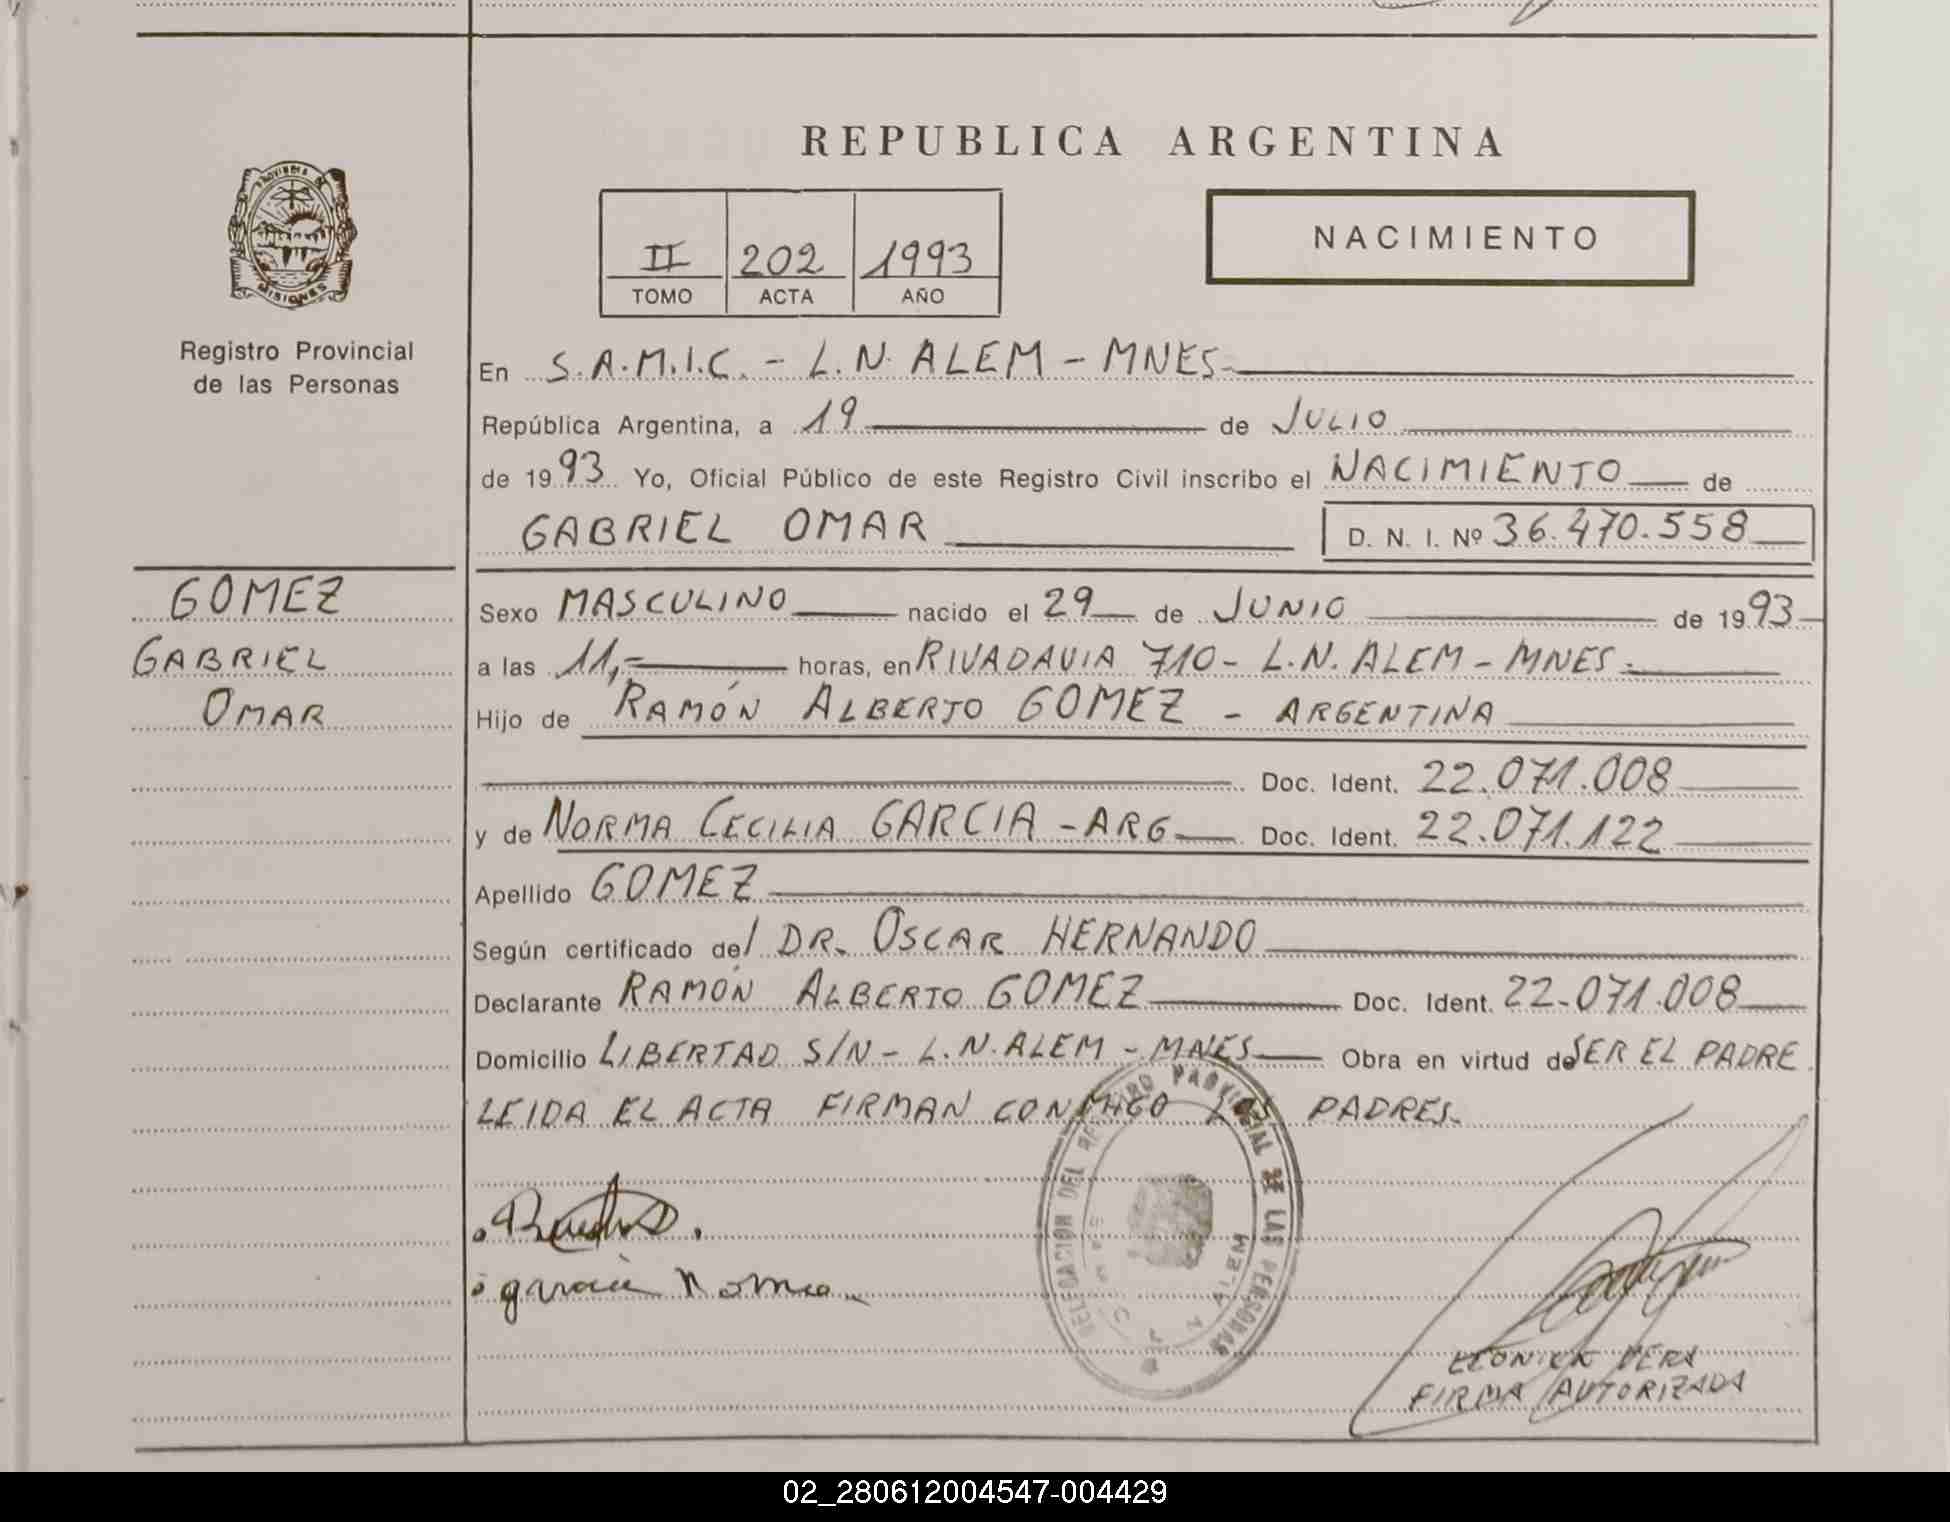 REPUBLICA ARGENTINA
PROVINCIA DE
MISIONES
Registro Provincial
de las Personas
II 202 1993
TOMO ACTA AÑO
NACIMIENTO
En S.A.M.I.C. - L.N. ALEM - MNES
República Argentina, a 19 de JULIO
de 1993 Yo, Oficial Público de este Registro Civil inscribo el NACIMIENTO de
GABRIEL OMAR D. N. I. Nº 36.470.558
GOMEZ
GABRIEL
OMAR
Sexo MASCULINO nacido el 29 de JUNIO de 1993
a las 11,= horas, en RIVADAVIA 710 - L.N. ALEM - MNES.
Hijo de RAMÓN ALBERTO GOMEZ - ARGENTINA
Doc. Ident. 22.071.008
y de NORMA CECILIA GARCIA - ARG Doc. Ident. 22.071.122
Apellido GOMEZ
Según certificado del DR. OSCAR HERNANDO
Declarante RAMÓN ALBERTO GOMEZ Doc. Ident. 22.071.008
Domicilio LIBERTAD S/N - L.N. ALEM - MNES Obra en virtud de SER EL PADRE
LEIDA EL ACTA FIRMAN CONMIGO LOS PADRES.
DELEGACION DEL REGISTRO PROVINCIAL DE LAS PERSONAS
ALEM
garcia Norma
VERA
FIRMA AUTORIZADA
02_280612004547-004429